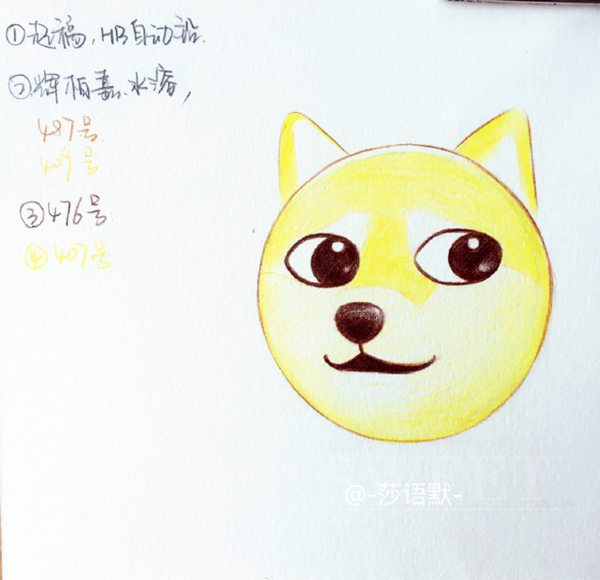 ①起稿，HB自动铅.
②辉柏嘉水溶，
487号
409号
③476号
④407号
@-莎语默-